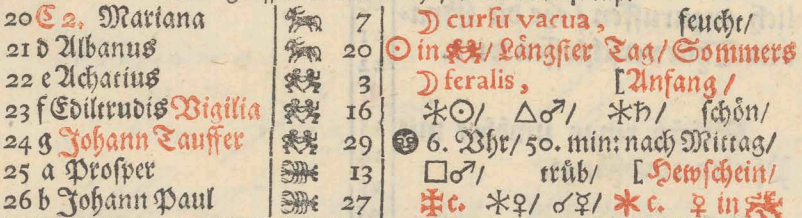 20 C 2. Mariana ♉ 7 ☽ cursu vacua, feucht/
21 d Albanus ♉ 20 ☉ in ♊/ Längster Tag/ Sommers
22 e Achatius ♊ 3 ☽ feralis, [Anfang/
23 f Ediltrudis Vigilia ♊ 16 ⚹☉/ △♂/ ⚹♄/ schön/
24 g Johann Tauffer ♊ 29 🌚 6. Vhr/ 50. min: nach Mittag/
25 a Prosper ♋ 13 □♂/ trüb/ [Hewschein/
26 b Johann Paul ♋ 27 ✠ c. ⚹♀/ ☌☿/ ⚹ c. ♀ in ♌